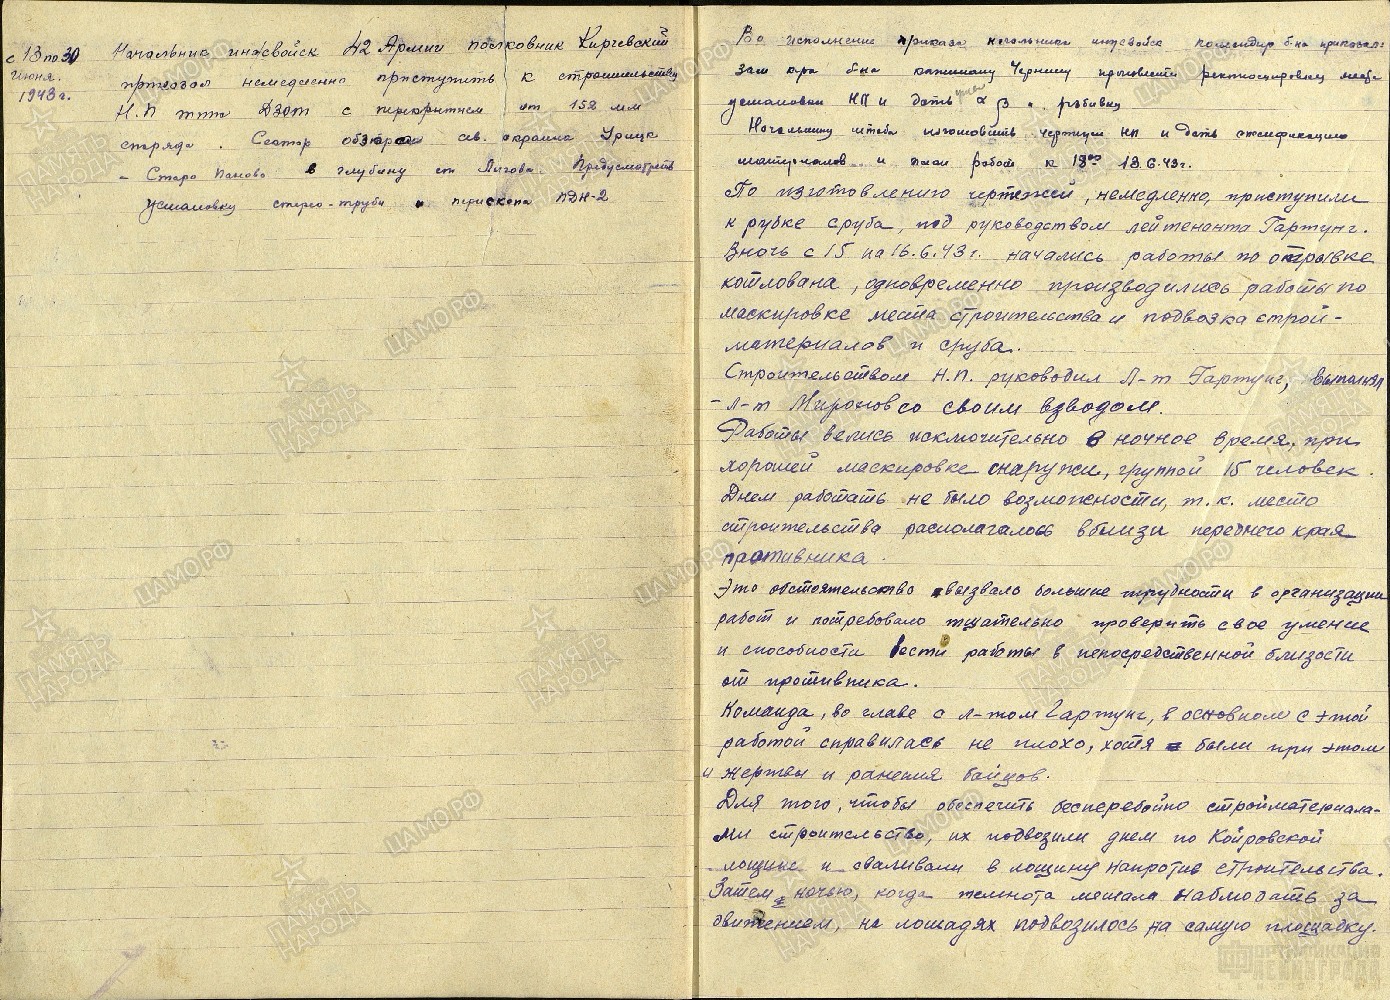 с 13 по 30
июня.
1943 г.
Начальник инж войск 42 Армии полковник Кирчевский
приказал немедленно приступить к строительству
Н.П типа ДЗОТ с перекрытием от 152 мм
снаряда. Сектор обзора св. окраина Урицк
- Старо Паново в глубину ст Лигово. Предусмотреть
установку стерео-трубы и перископа ПДН-2
Во исполнение приказа начальника инжвойск командир б-на приказал:
зам ком б-на капитану Чернину произвести рекогносцировку места
установки НП и дать разбивку
Начальнику штаба изготовить чертежи НП и дать спецификацию
материалов и план работ к 18⁰⁰ 13.6.43г.
По изготовлению чертежей, немедленно, приступили
к рубке сруба, под руководством лейтенанта Гартунг.
В ночь с 15 на 16.6.43г. начались работы по отрывке
котлована, одновременно производились работы по
маскировке места строительства и подвозка строй-
материалов и сруба.
Строительством Н.П. руководил Л-т Гартунг, выполнял
- л-т Миронов со своим взводом.
Работы велись исключительно в ночное время, при
хорошей маскировке снаружи, группой 15 человек.
Днем работать не было возможности, т.к. место
строительства располагалось вблизи переднего края
противника.
Это обстоятельство вызвало большие трудности в организации
работ и потребовало тщательно проверить свое умение
и способности вести работы в непосредственной близости
от противника.
Команда, во главе с л-том Гартунг, в основном с этой
работой справилась не плохо, хотя были при этом
и жертвы и ранения бойцов.
Для того, чтобы обеспечить бесперебойно стройматериала-
ми строительство, их подвозили днем по Койровской
лощине и сваливали в лощину напротив строительства.
Затем ночью, когда темнота мешала наблюдать за
движением, на лошадях подвозилось на самую площадку.
ПАМЯТЬ НАРОДА
ЦАМО РФ
ФОРТИФИКАЦИЯ
ЛЕНИНГРАДА